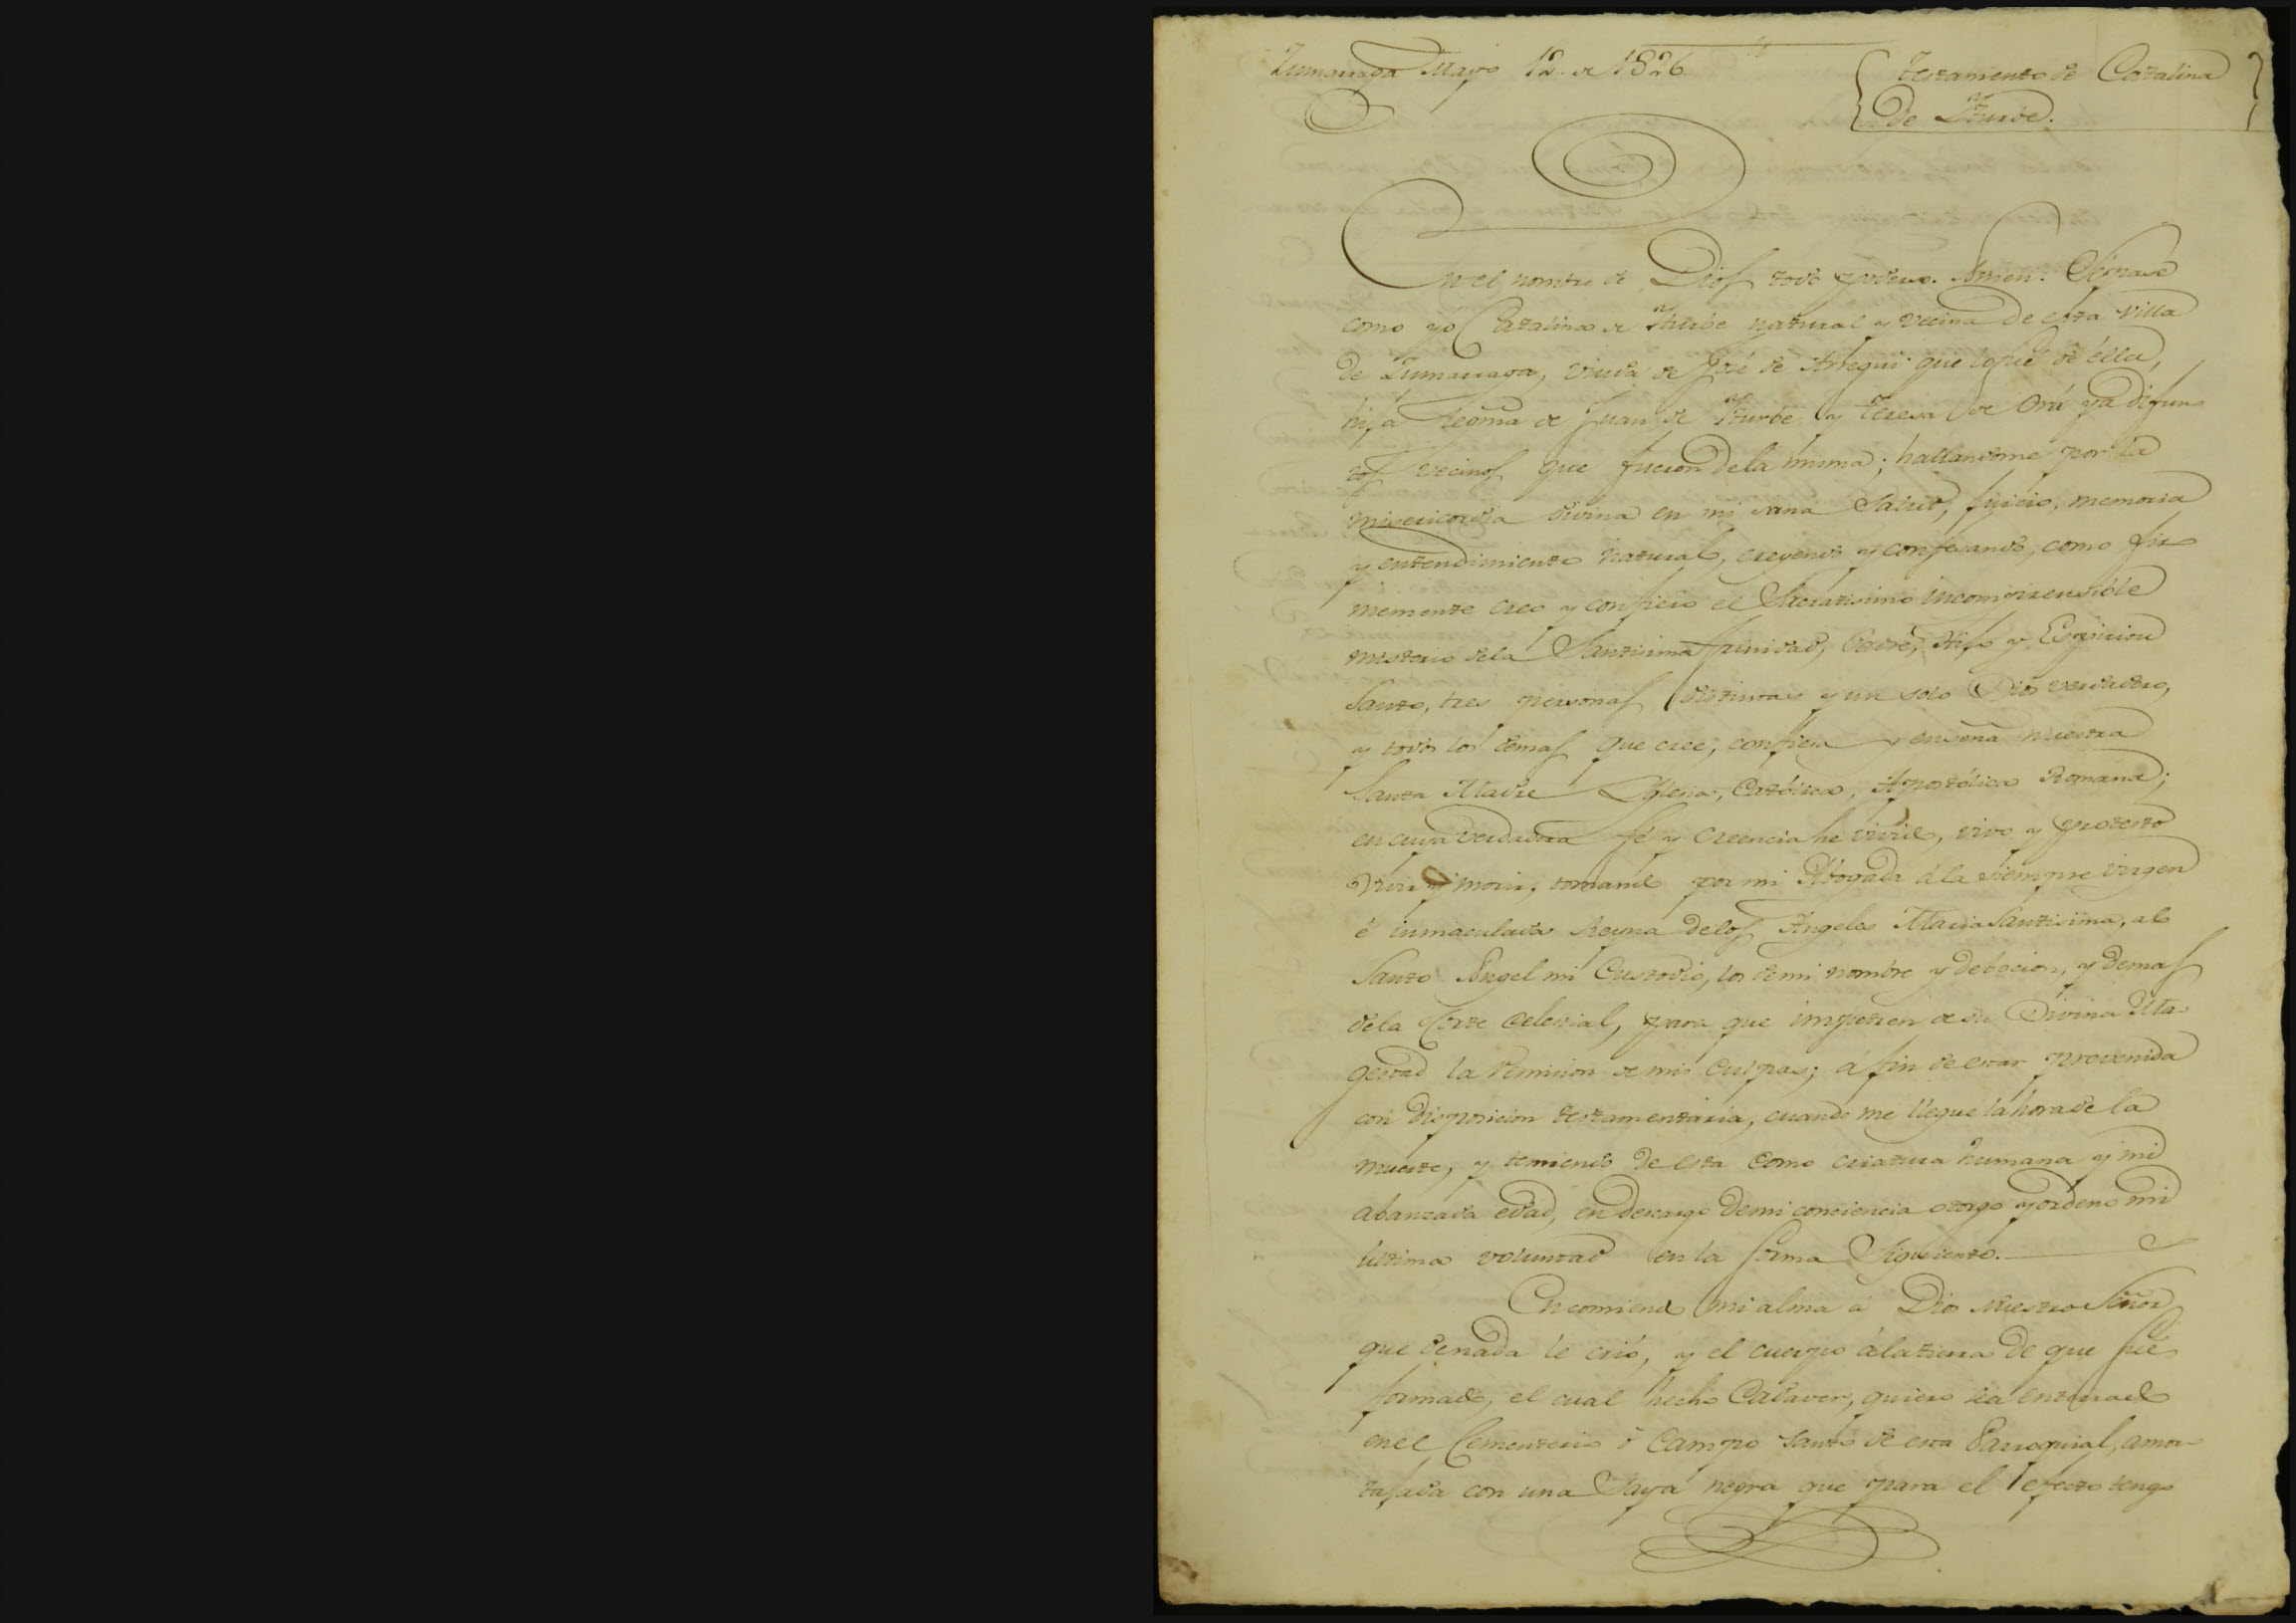 Zumarraga Mayo 12 de 1826
Testamento de Catalina
de Yturbe.
En el nombre de Dios todo poderoso. Amen. Sépase
como yó Catalina de Yturbe natural y vecina de esta villa
de Zumarraga, viuda de José de Arregui que lo fué de élla,
hija lexma de Juan de Yturbe y Teresa de Oria ya difun
tos vecinos que fueron dela misma; hallandome por la
misericordia divina en mi sana salud, juicio, memoria
y entendimiento natural, creyendo y confesando, como fir
memente creo y confieso el Sacratisimo incomprensible
misterio dela Santisima Trinidad, Padre, Hijo y Espiritu
Santo, tres personas distintas y un solo Dios verdadero,
y todos los demas que cree, confiesa y enseña nuestra
Santa Madre Yglesia, Católica, Apostólica Romana;
en cuya verdadera fé y creencia he vivido, vivo y protesto
vivir y morir, tomando por mi Abogada á la siempre virgen
é inmaculada Reyna delos Angeles Maria Santisima, al
Santo Angel mi Custodio, los de mi nombre y debocion, y demas
dela Corte Celestial, para que impetren de su Divina Ma
gestad la remision de mis culpas; á fin de estar prevenida
con disposicion testamentaria, cuando me llegue la hora de la
muerte, y temiendo de esta como criatura humana y mi
abanzada edad, en descargo de mi conciencia otorgo y ordeno mi
última voluntad en la forma siguiente.
Encomiendo mi alma á Dios nuestro Señor
que de nada le crió, y el cuerpo á la tierra de que fué
formado, el cual hecho Cadaver, quiero sea enterrado
en el Cementerio ó Campo santo de esta Parroquial, amor
tajada con una Saya negra que para el efecto tengo